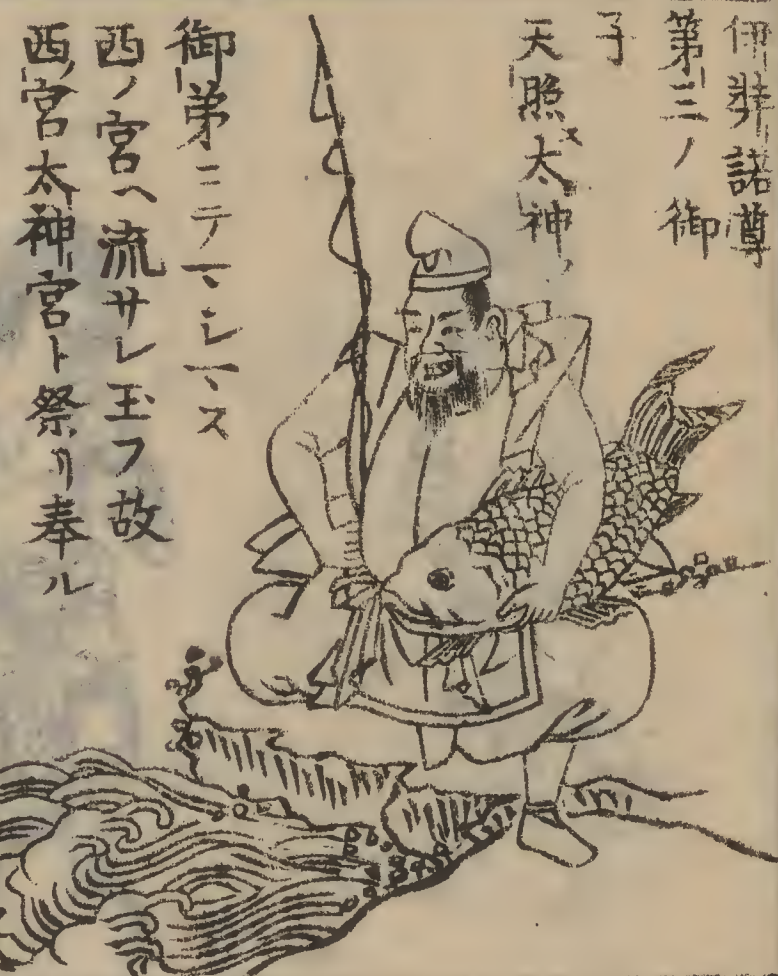 伊弉諾尊
第三ノ御
子
天照太神ノ
御弟ニテマシマス
西ノ宮ヘ流サレ玉フ故
西ノ宮太神宮ト祭リ奉ル